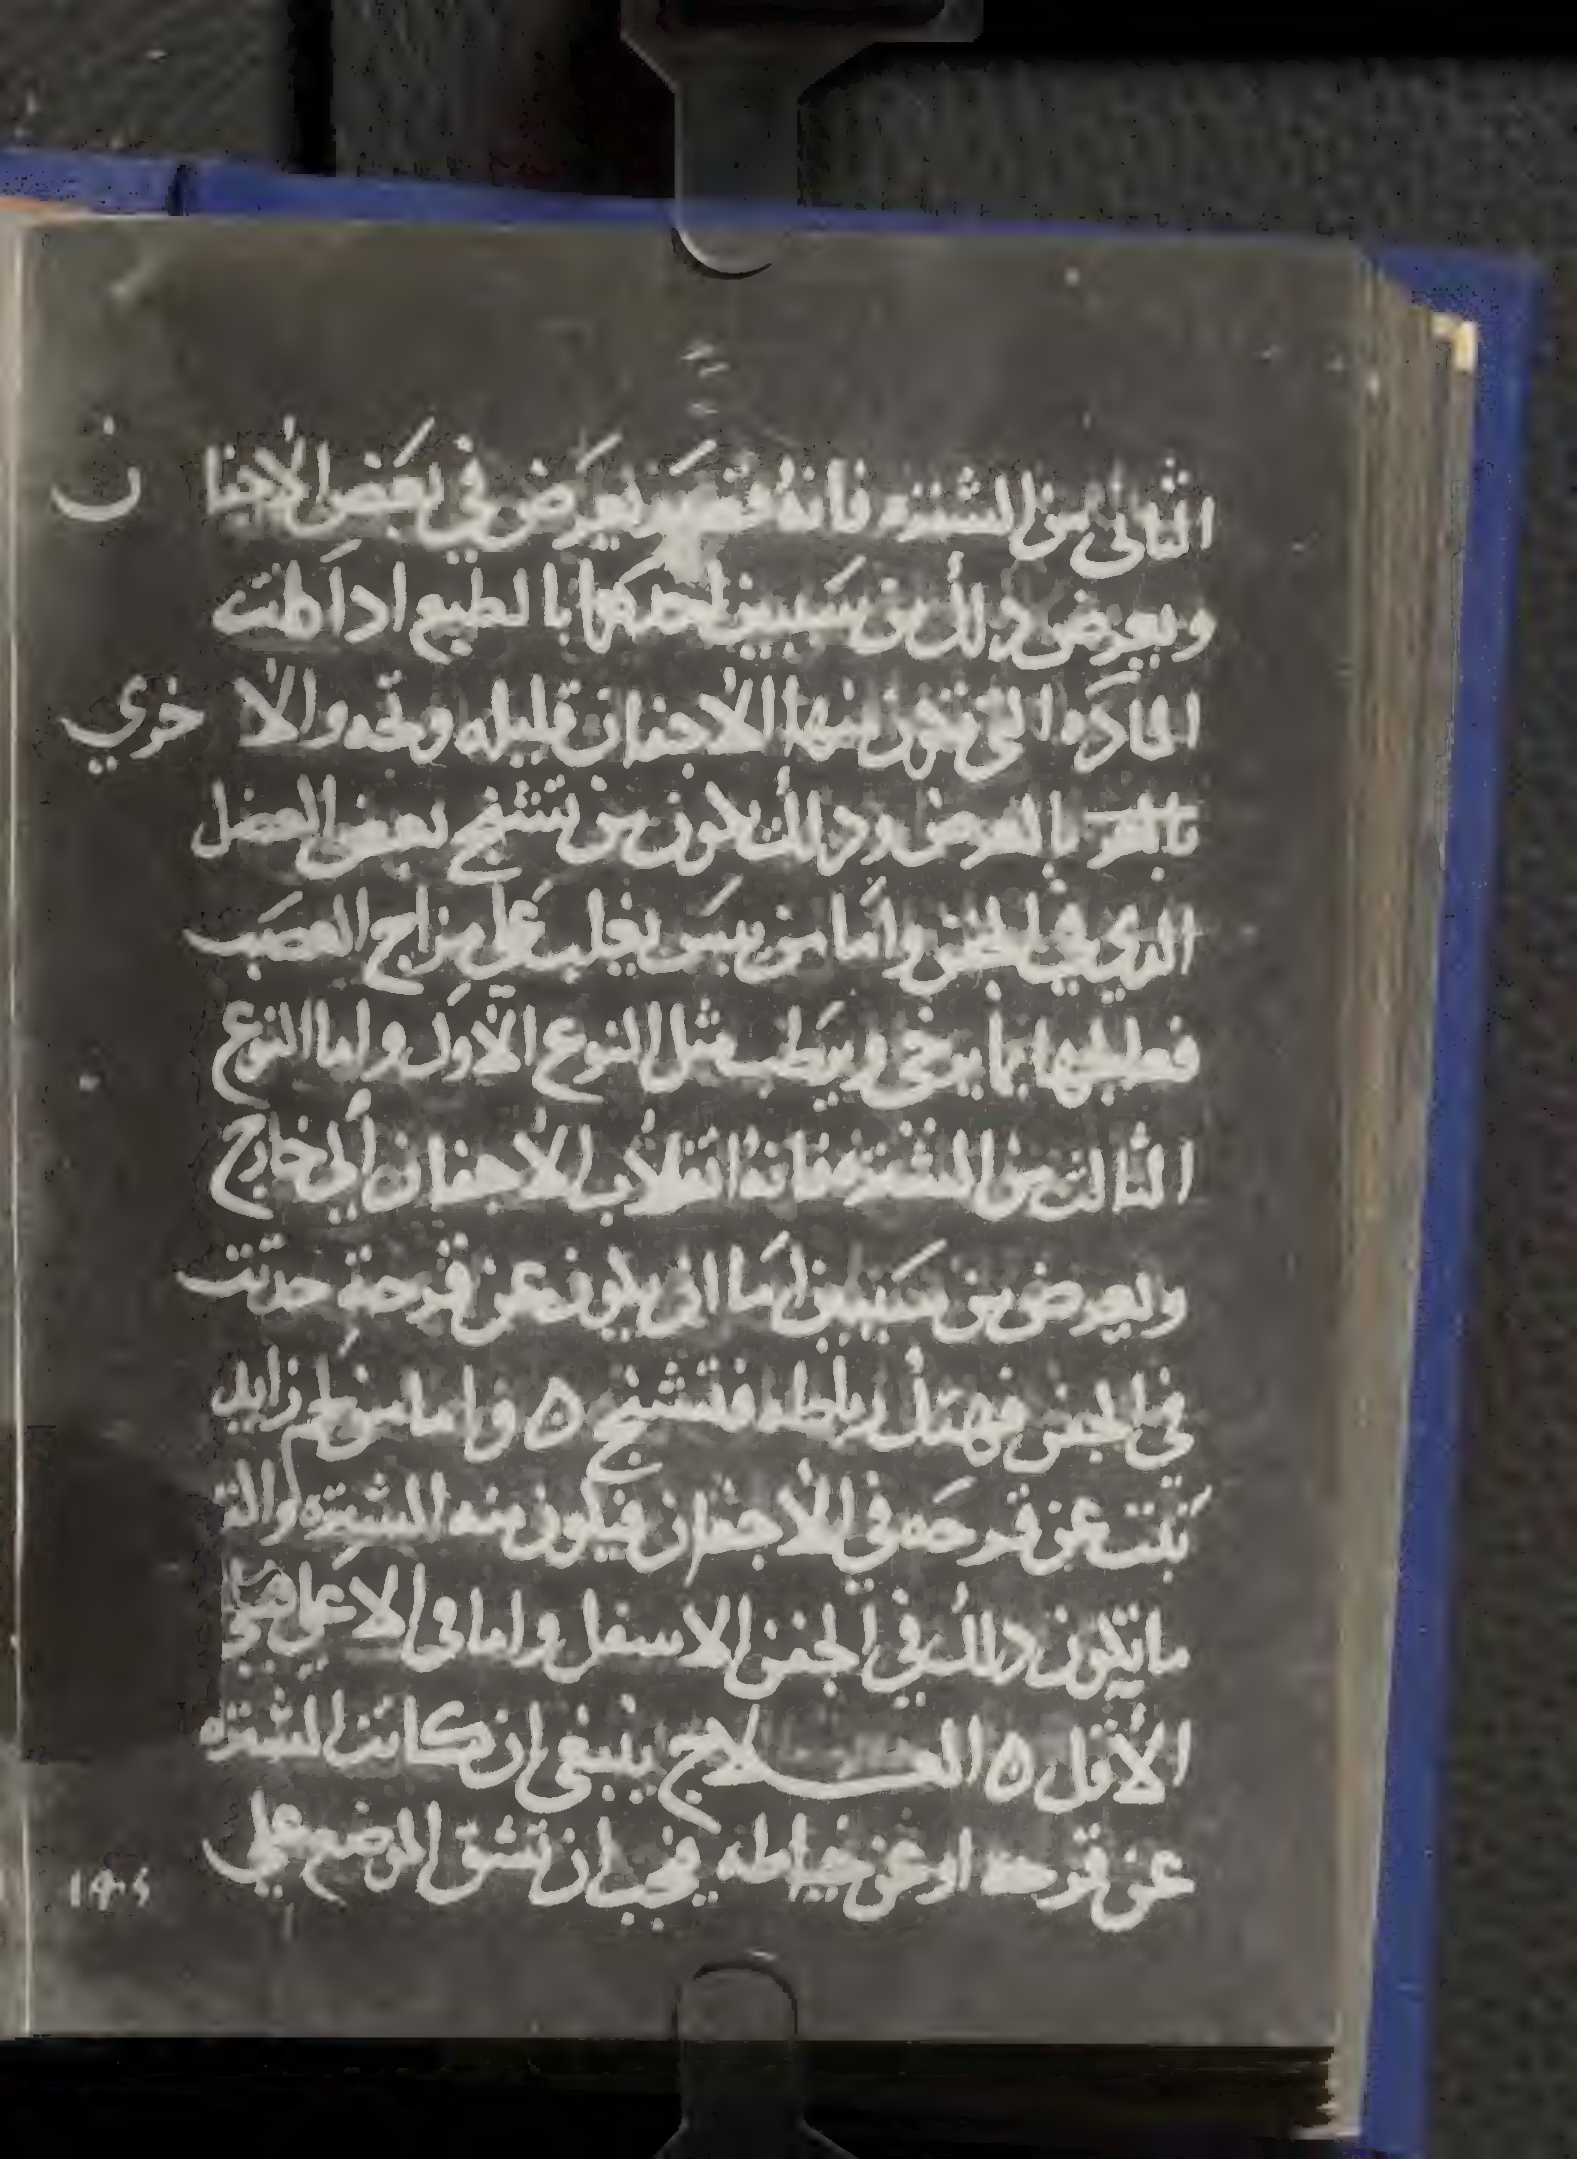 الثاني من الشتره فانهُ قصَر يعرَض في بعَض الاجفا ن
ويعرض دلك من سَببين احدهما بالطبع ادا كانت
المادَه التي تكون منها الاجفان قليله وتحه والا خري
بالعرض ودالك يكون من تشنج بعض العضل
الدي في الجفن وامَا من يبس يغلب عَلي مزاج العصَب
فعلاجها بما يرخي ويرَطب مثل النوع الاوَل واما النوع
الثالث من الشتره فانهُ انقلاب الاجفان إلي خارج
ويعرض من سَببين امَا ان يكون عن قرحةٍ حدثت
في الجفن رباطه فتشنج ه واما من لحم زايد
نبَت عن قرحَه في الاجفان فيكون منه الشتره واكثر
ما يكون دلك في الجفن الاسفل واما في الاعلي
الاقل ه العــلاج ينبغي ان كانت الشتره
عن قرحه او عن خياطه يجب ان تشق الموضع علي